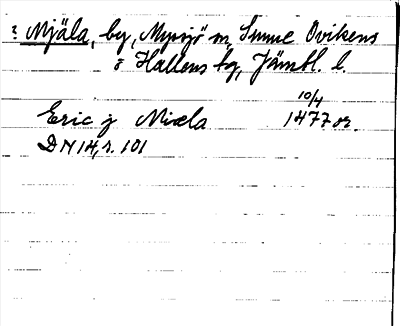 ? Mjäla, by, Myssjö m, Sunne Ovikens
o Hallens tg, Jämtl. l.
Eric y Miæla 10/4 1477 or.
DN 14, s. 101